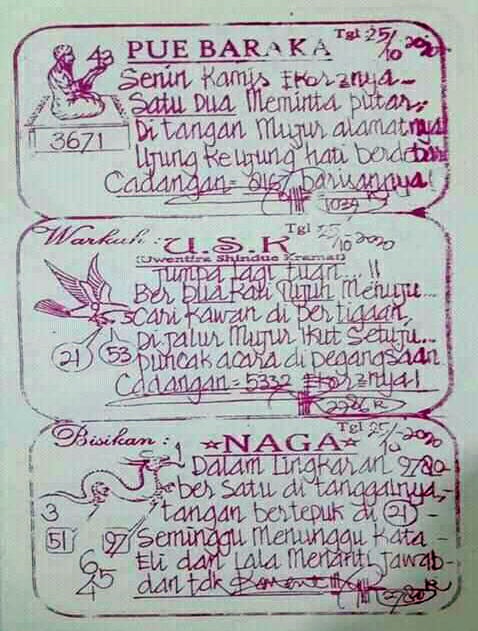 PUE BARAKA
Tgl 25/10 2020
43
3671
Senin Kamis Ekornya
Satu Dua Meminta putar
Di tangan Mujur alamatnya
Ujung ke ujung hati
Cadangan = 2467 barisannya!
1034 R
Warkah : U.S.K
Tgl 25/10 2020
(Uwentira Shindue Kramat)
Jumpa lagi tuan...!!
Ber Dua Kali Tujuh Menuju...
Cari Kawan di Bertigaan,
Di Jalur Mujur Ikut Setuju...
21 53
Puncak acara di Pegangsaan
Cadangan = 5332
2286 R
Bisikan : NAGA
Tgl 25/10 - 2020
1
Dalam Lingkaran 9780-
ber Satu di tanggalnya,-
3
tangan bertepuk di 21 -
51 97
Seminggu Menunggu Kata -
6
45
Eli dan Lala Menanti Jawab-
dan tdk
2780 R